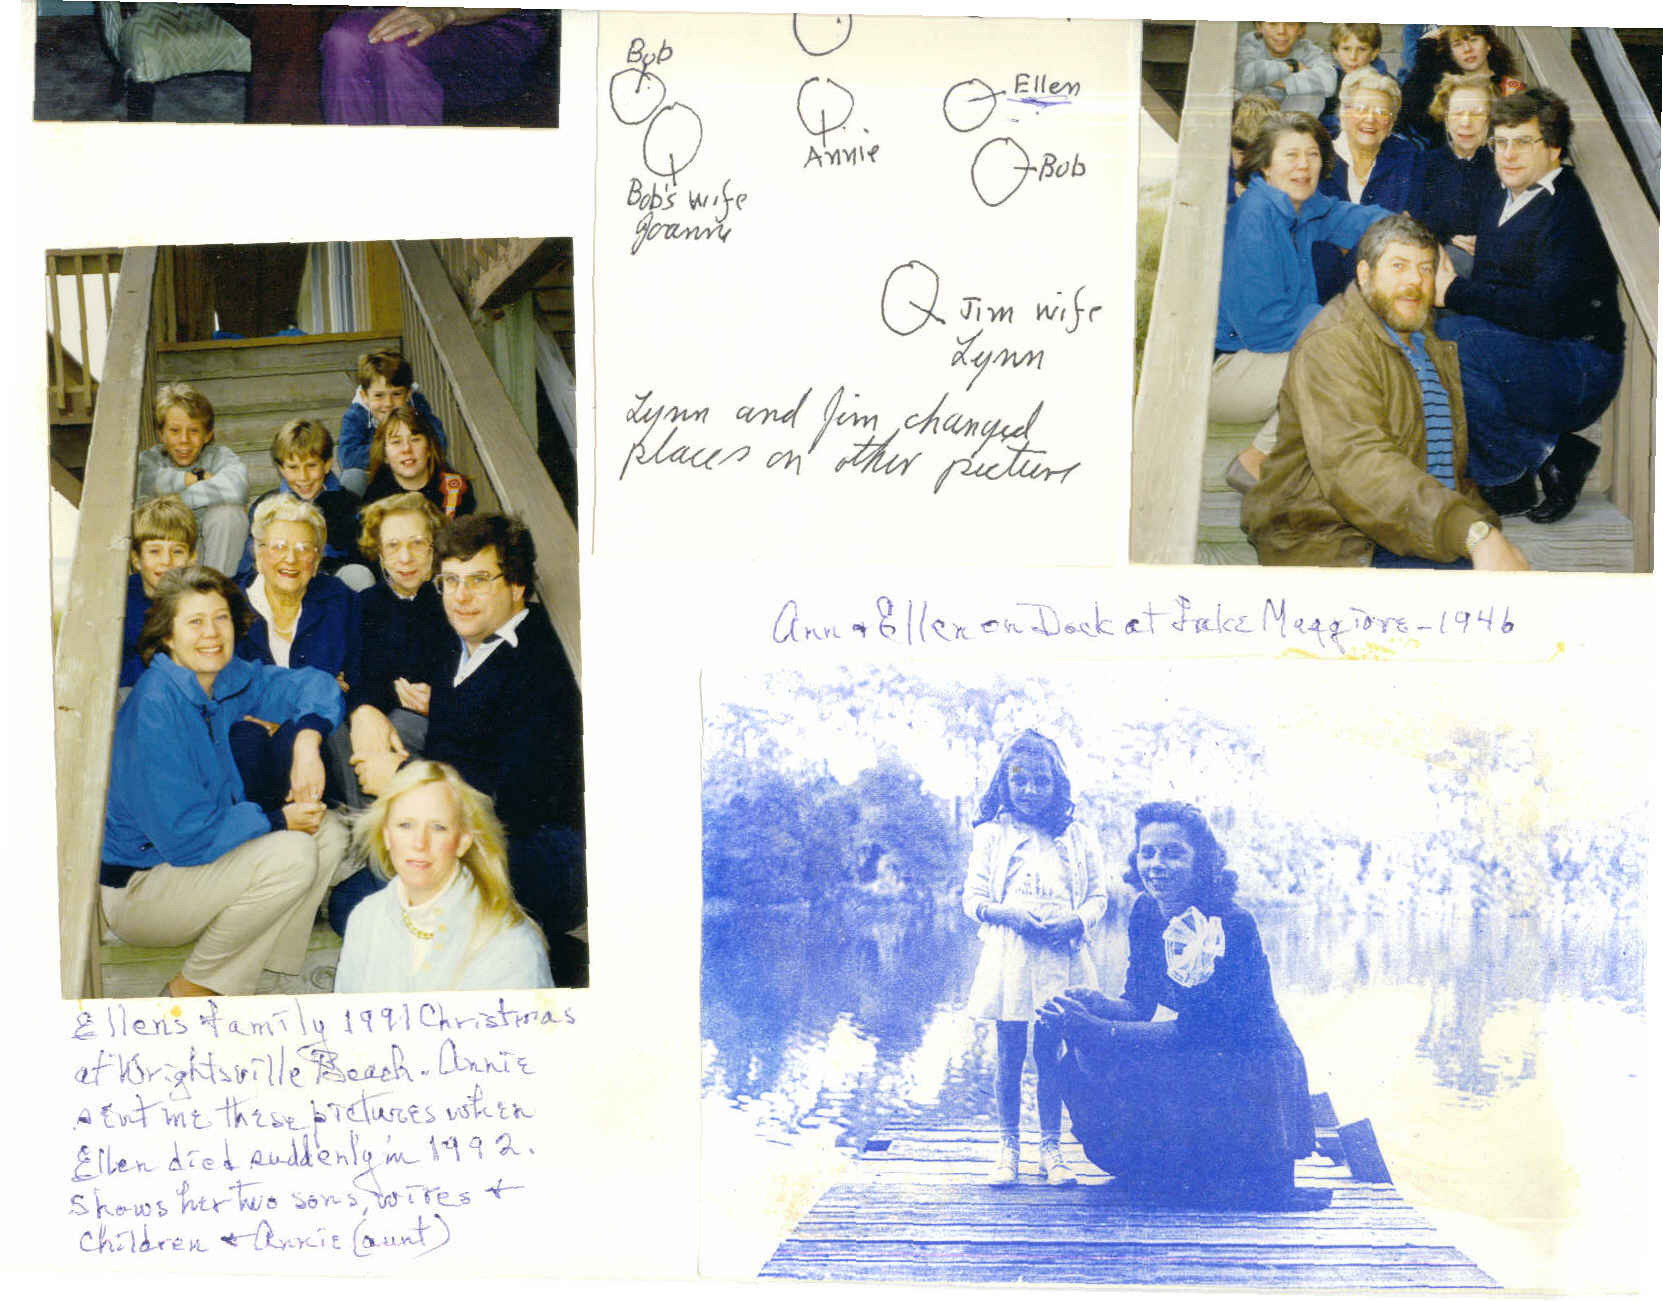 Bob
Ellen
Annie
Bob
Bob's wife
Joanne
Jim wife
Lynn
Lynn and Jim changed
places on other picture
Ann & Ellen on Dock at Lake Maggiore - 1946
Ellens family 1991 Christmas
at Wrightsville Beach. Annie
sent me these pictures when
Ellen died suddenly in 1992.
Shows her two sons, wives &
children & Annie (aunt)